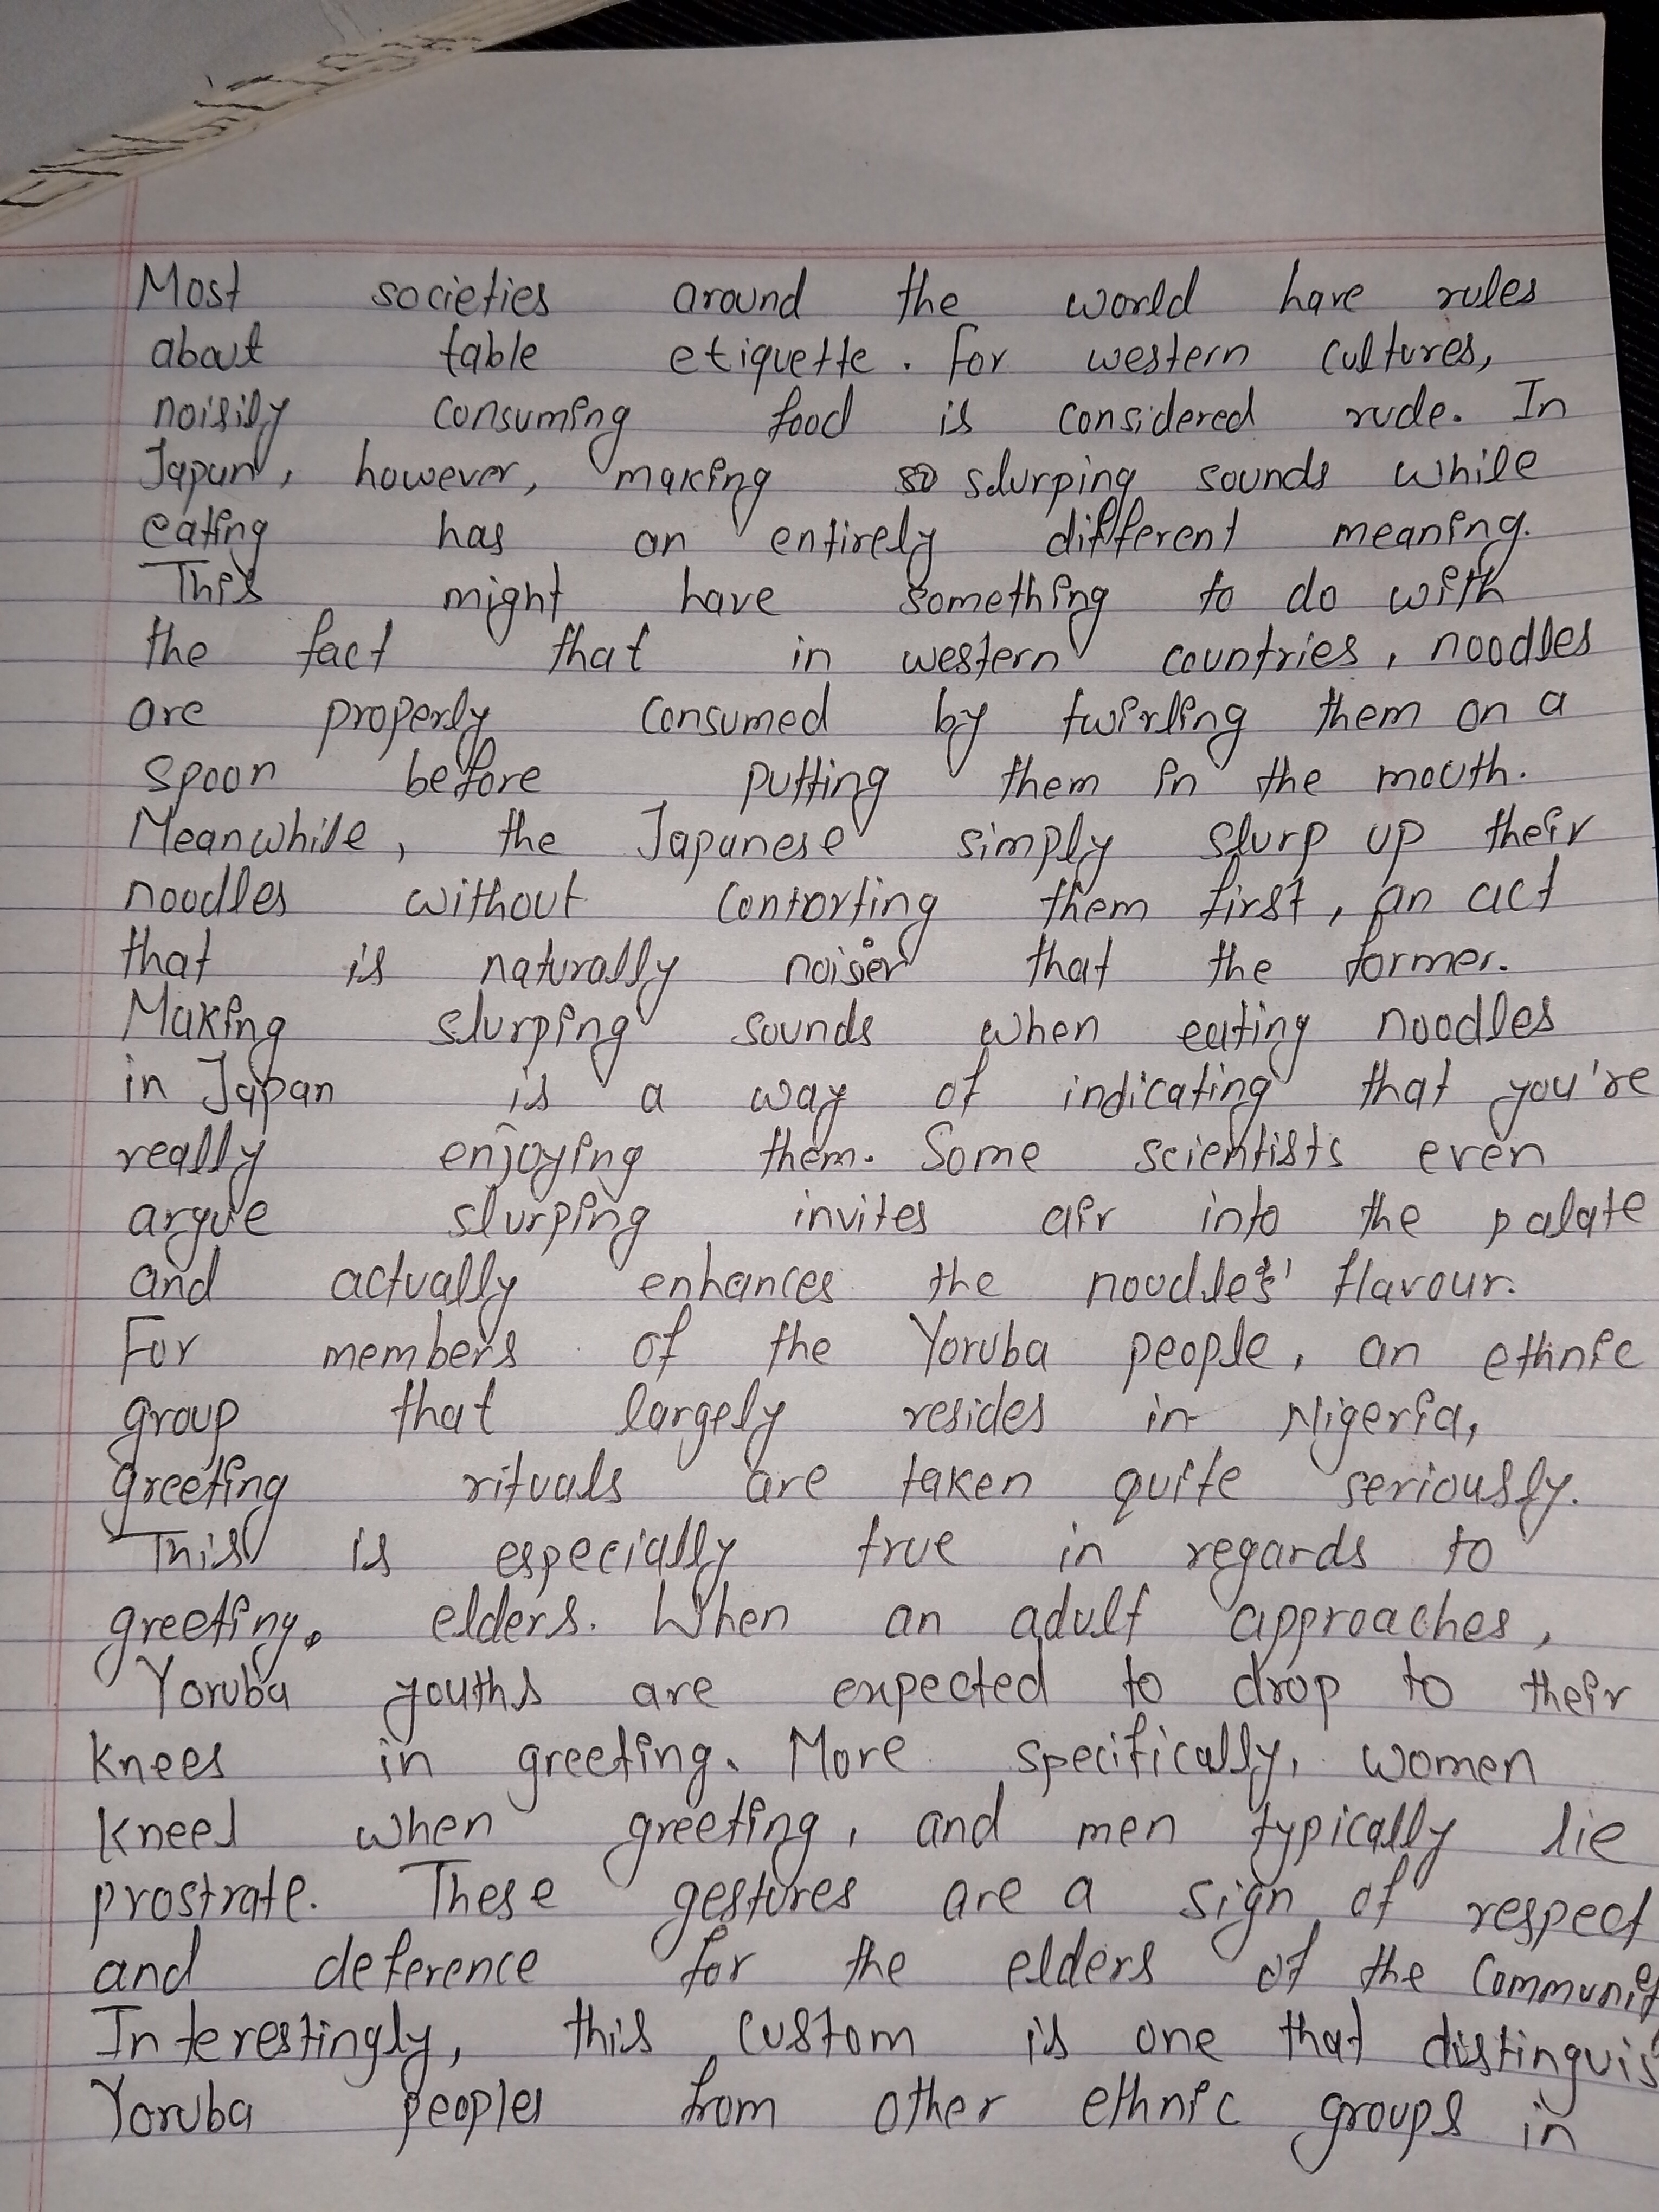 Most societies around the world have rules
about table etiquette. For western cultures,
noisily consuming food is considered rude. In
Japan, however, making so slurping sounds while
eating has an entirely different meaning.
This might have something to do with
the fact that in western countries, noodles
are properly consumed by twirling them on a
spoon before putting them in the mouth.
Meanwhile, the Japanese simply slurp up their
noodles without contorting them first, an act
that is naturally noiser that the former.
Making slurping sounds when eating noodles
in Japan is a way of indicating that you're
really enjoying them. Some scientists even
argue slurping invites air into the palate
and actually enhances the noodles' flavour.
For members of the Yoruba people, an ethnic
group that largely resides in Nigeria,
greeting rituals are taken quite seriously.
This is especially true in regards to
greeting. elders. When an adult approaches,
Yoruba youths are expected to drop to their
knees in greeting. More specifically, women
kneel when greeting, and men typically lie
prostrate. These gestures are a sign of respect
and deference for the elders of the Communit
Interestingly, this custom is one that distinguis
Yoruba peoples from other ethnic groups in